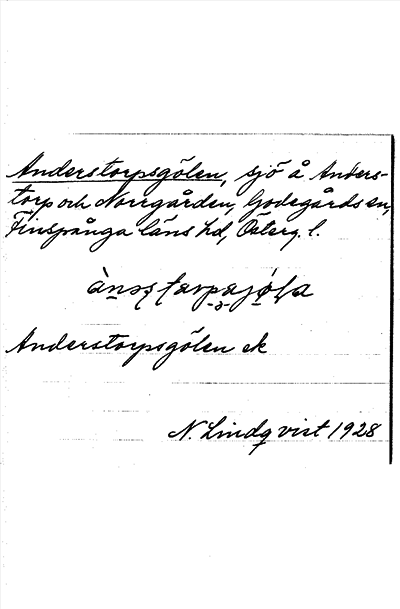 Anderstorpsgölen, sjö å Anders-
torp och Norrgården, Godegårds sn,
Finspånga läns hd, Österg. l.
Anderstorpsgölen ek
N. Lindqvist 1928